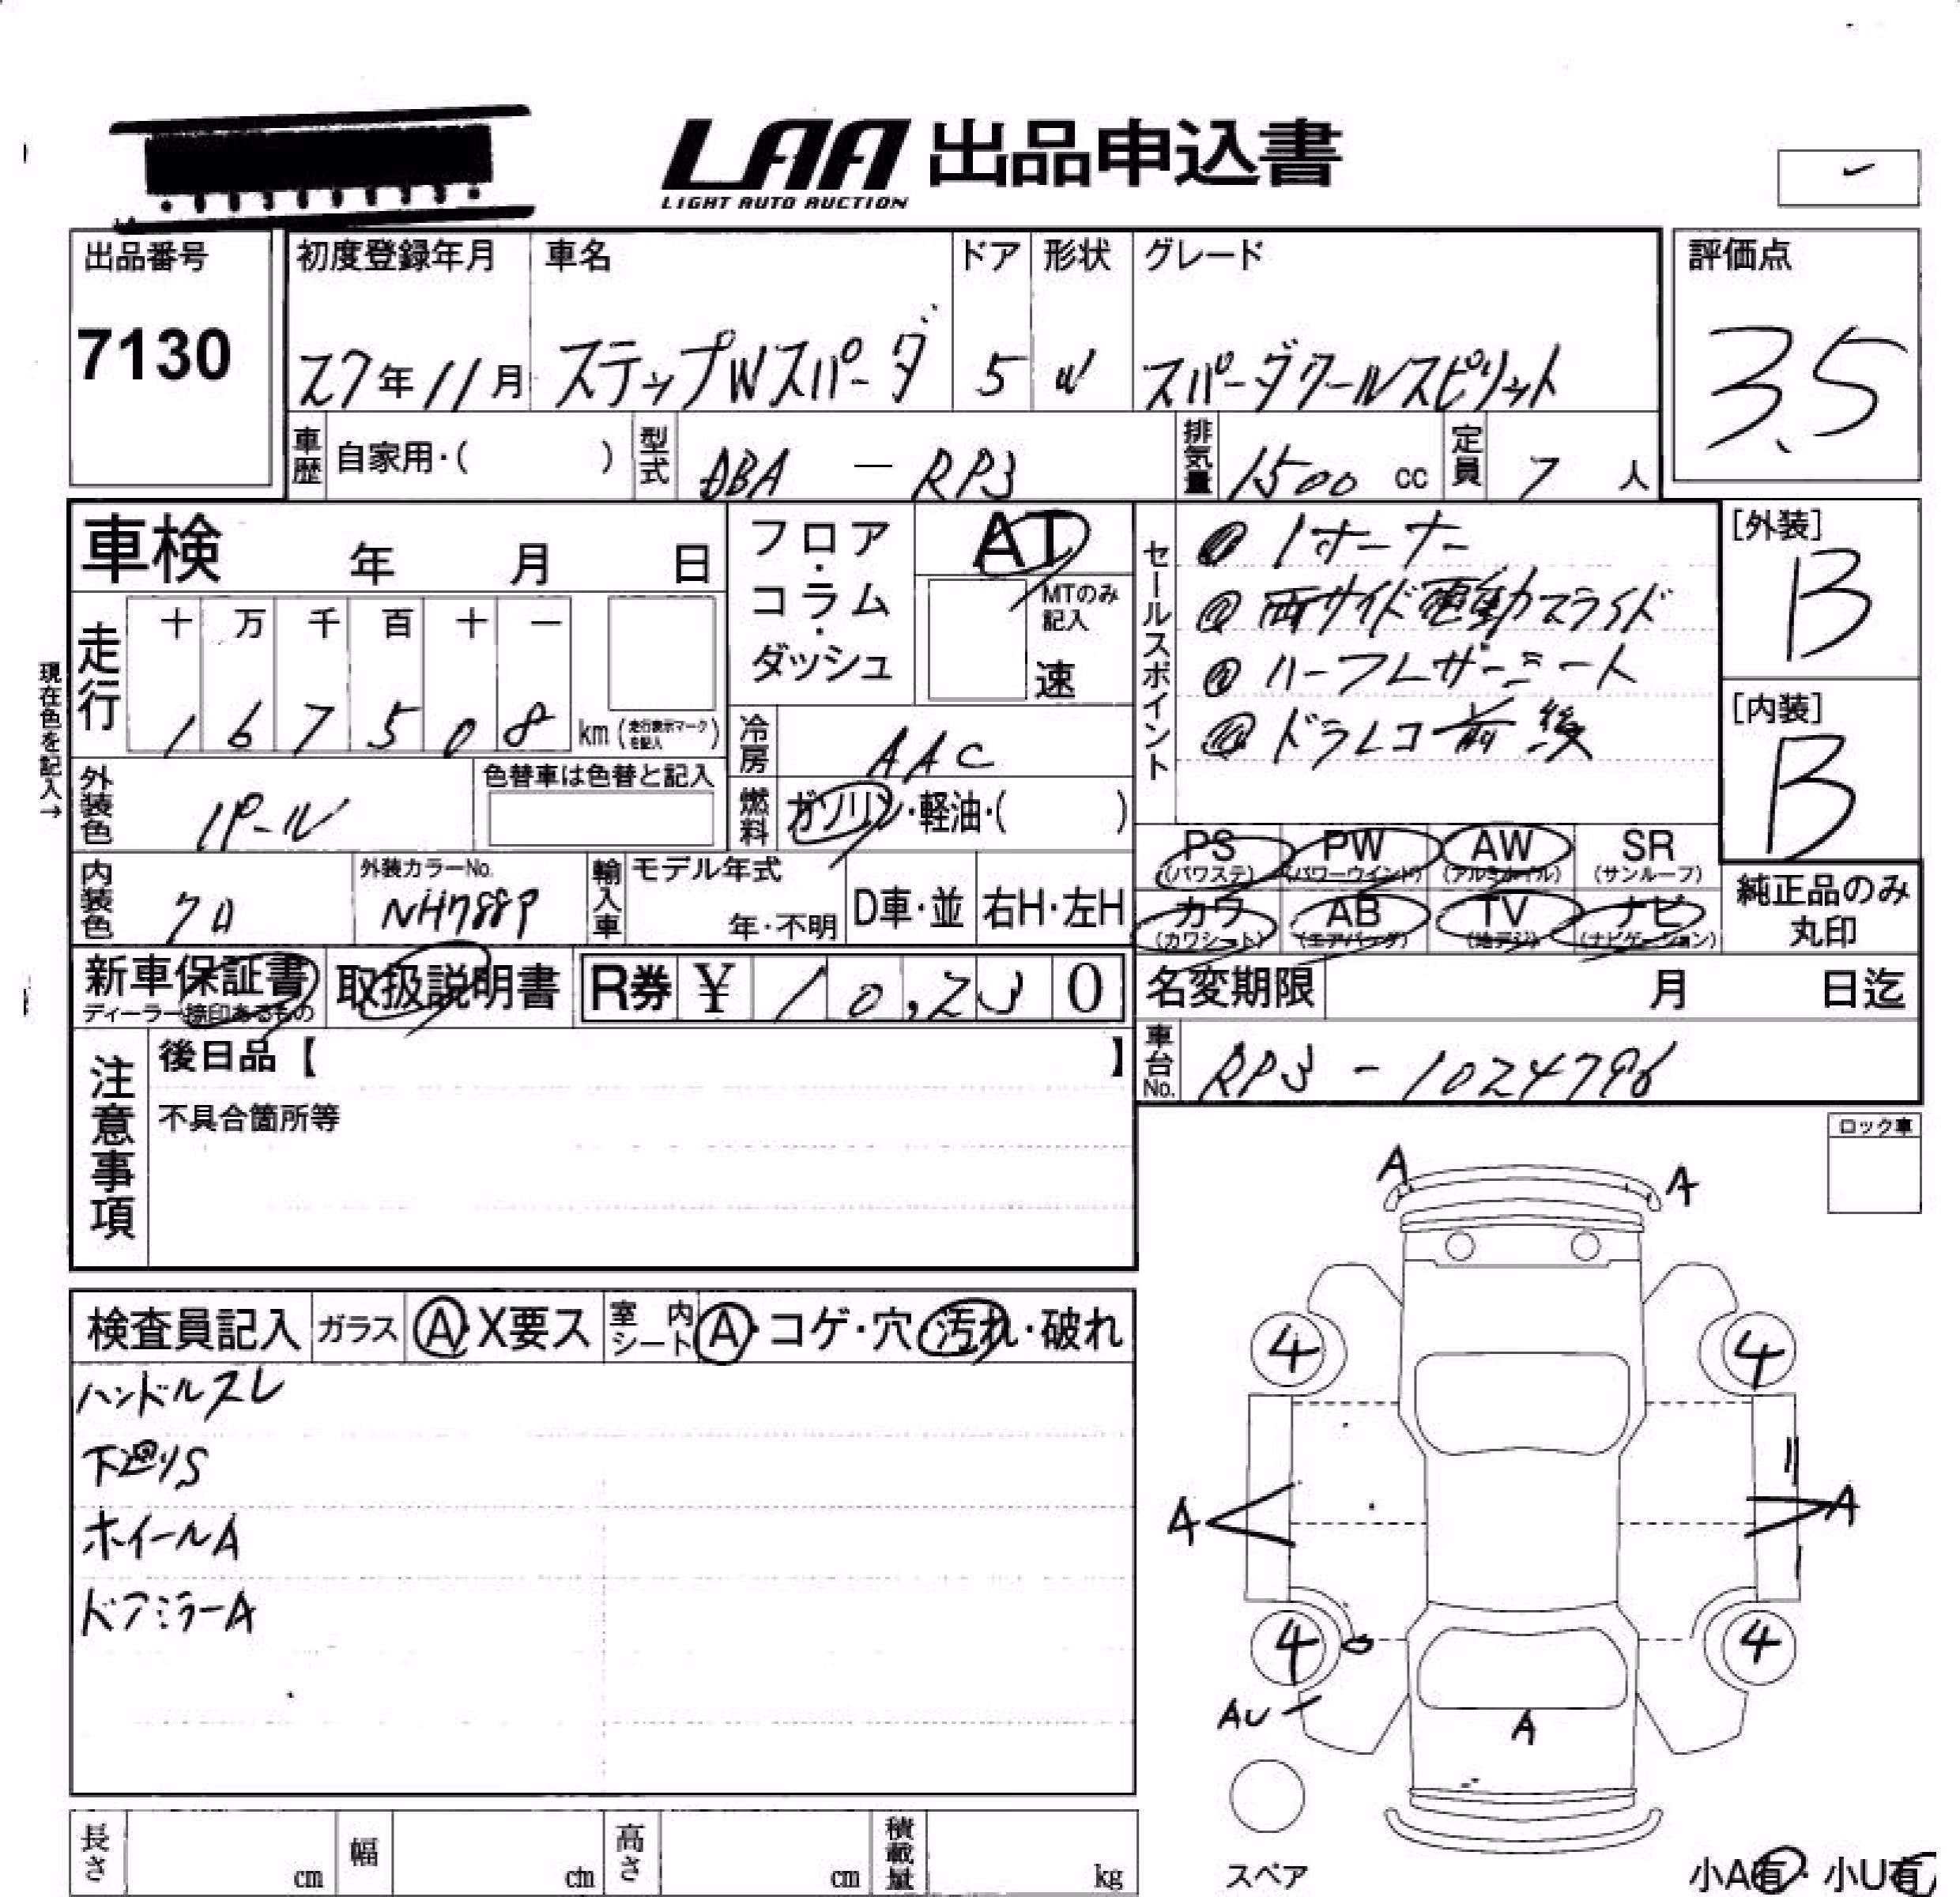 LAA 出品申込書
LIGHT AUTO AUCTION
出品番号 初度登録年月 車名 ドア 形状 グレード 評価点
7130 27年11月 ステップWスパーダ 5 W スパーダクールスピリット 3.5
車歴 自家用・( ) 型式 DBA — RP3 排気量 1500 cc 定員 7 人
車検 年 月 日 フロア・コラム・ダッシュ AT
MTのみ記入 速
セールスポイント
@ 1オーナー
@ 両サイド電動スライド
@ ハーフレザーシート
@ ドラレコ 前 後
[外装] B
[内装] B
現在色を記入→
走行 十 万 千 百 十 一
1 6 7 5 0 8 km (走行表示マークを記入)
冷房 AAC
外装色 パール 色替車は色替と記入
燃料 ガソリン・軽油・( )
PS (パワステ) PW (パワーウインド) AW (アルミホイル) SR (サンルーフ)
内装色 クロ 外装カラーNo. NH788P 輸入車 モデル年式 年・不明 D車・並 右H・左H
カワ (カワシート) AB (エアバッグ) TV (地デジ) ナビ (ナビゲーション)
純正品のみ丸印
新車保証書 ディーラー捺印あるもの 取扱説明書 R券 ¥ 10,230
名変期限 月 日迄
車台No. RP3 - 1024796
注意事項 後日品【 】
不具合箇所等
ロック車
検査員記入 ガラス A・X要ス 室内シート A・コゲ・穴・汚れ・破れ
ハンドルスレ
下回りS
ホイールA
ドアミラーA
A A
4 4
A A
4 4
AU A
スペア
小A有・小U有
長さ cm 幅 cm 高さ cm 積載量 kg